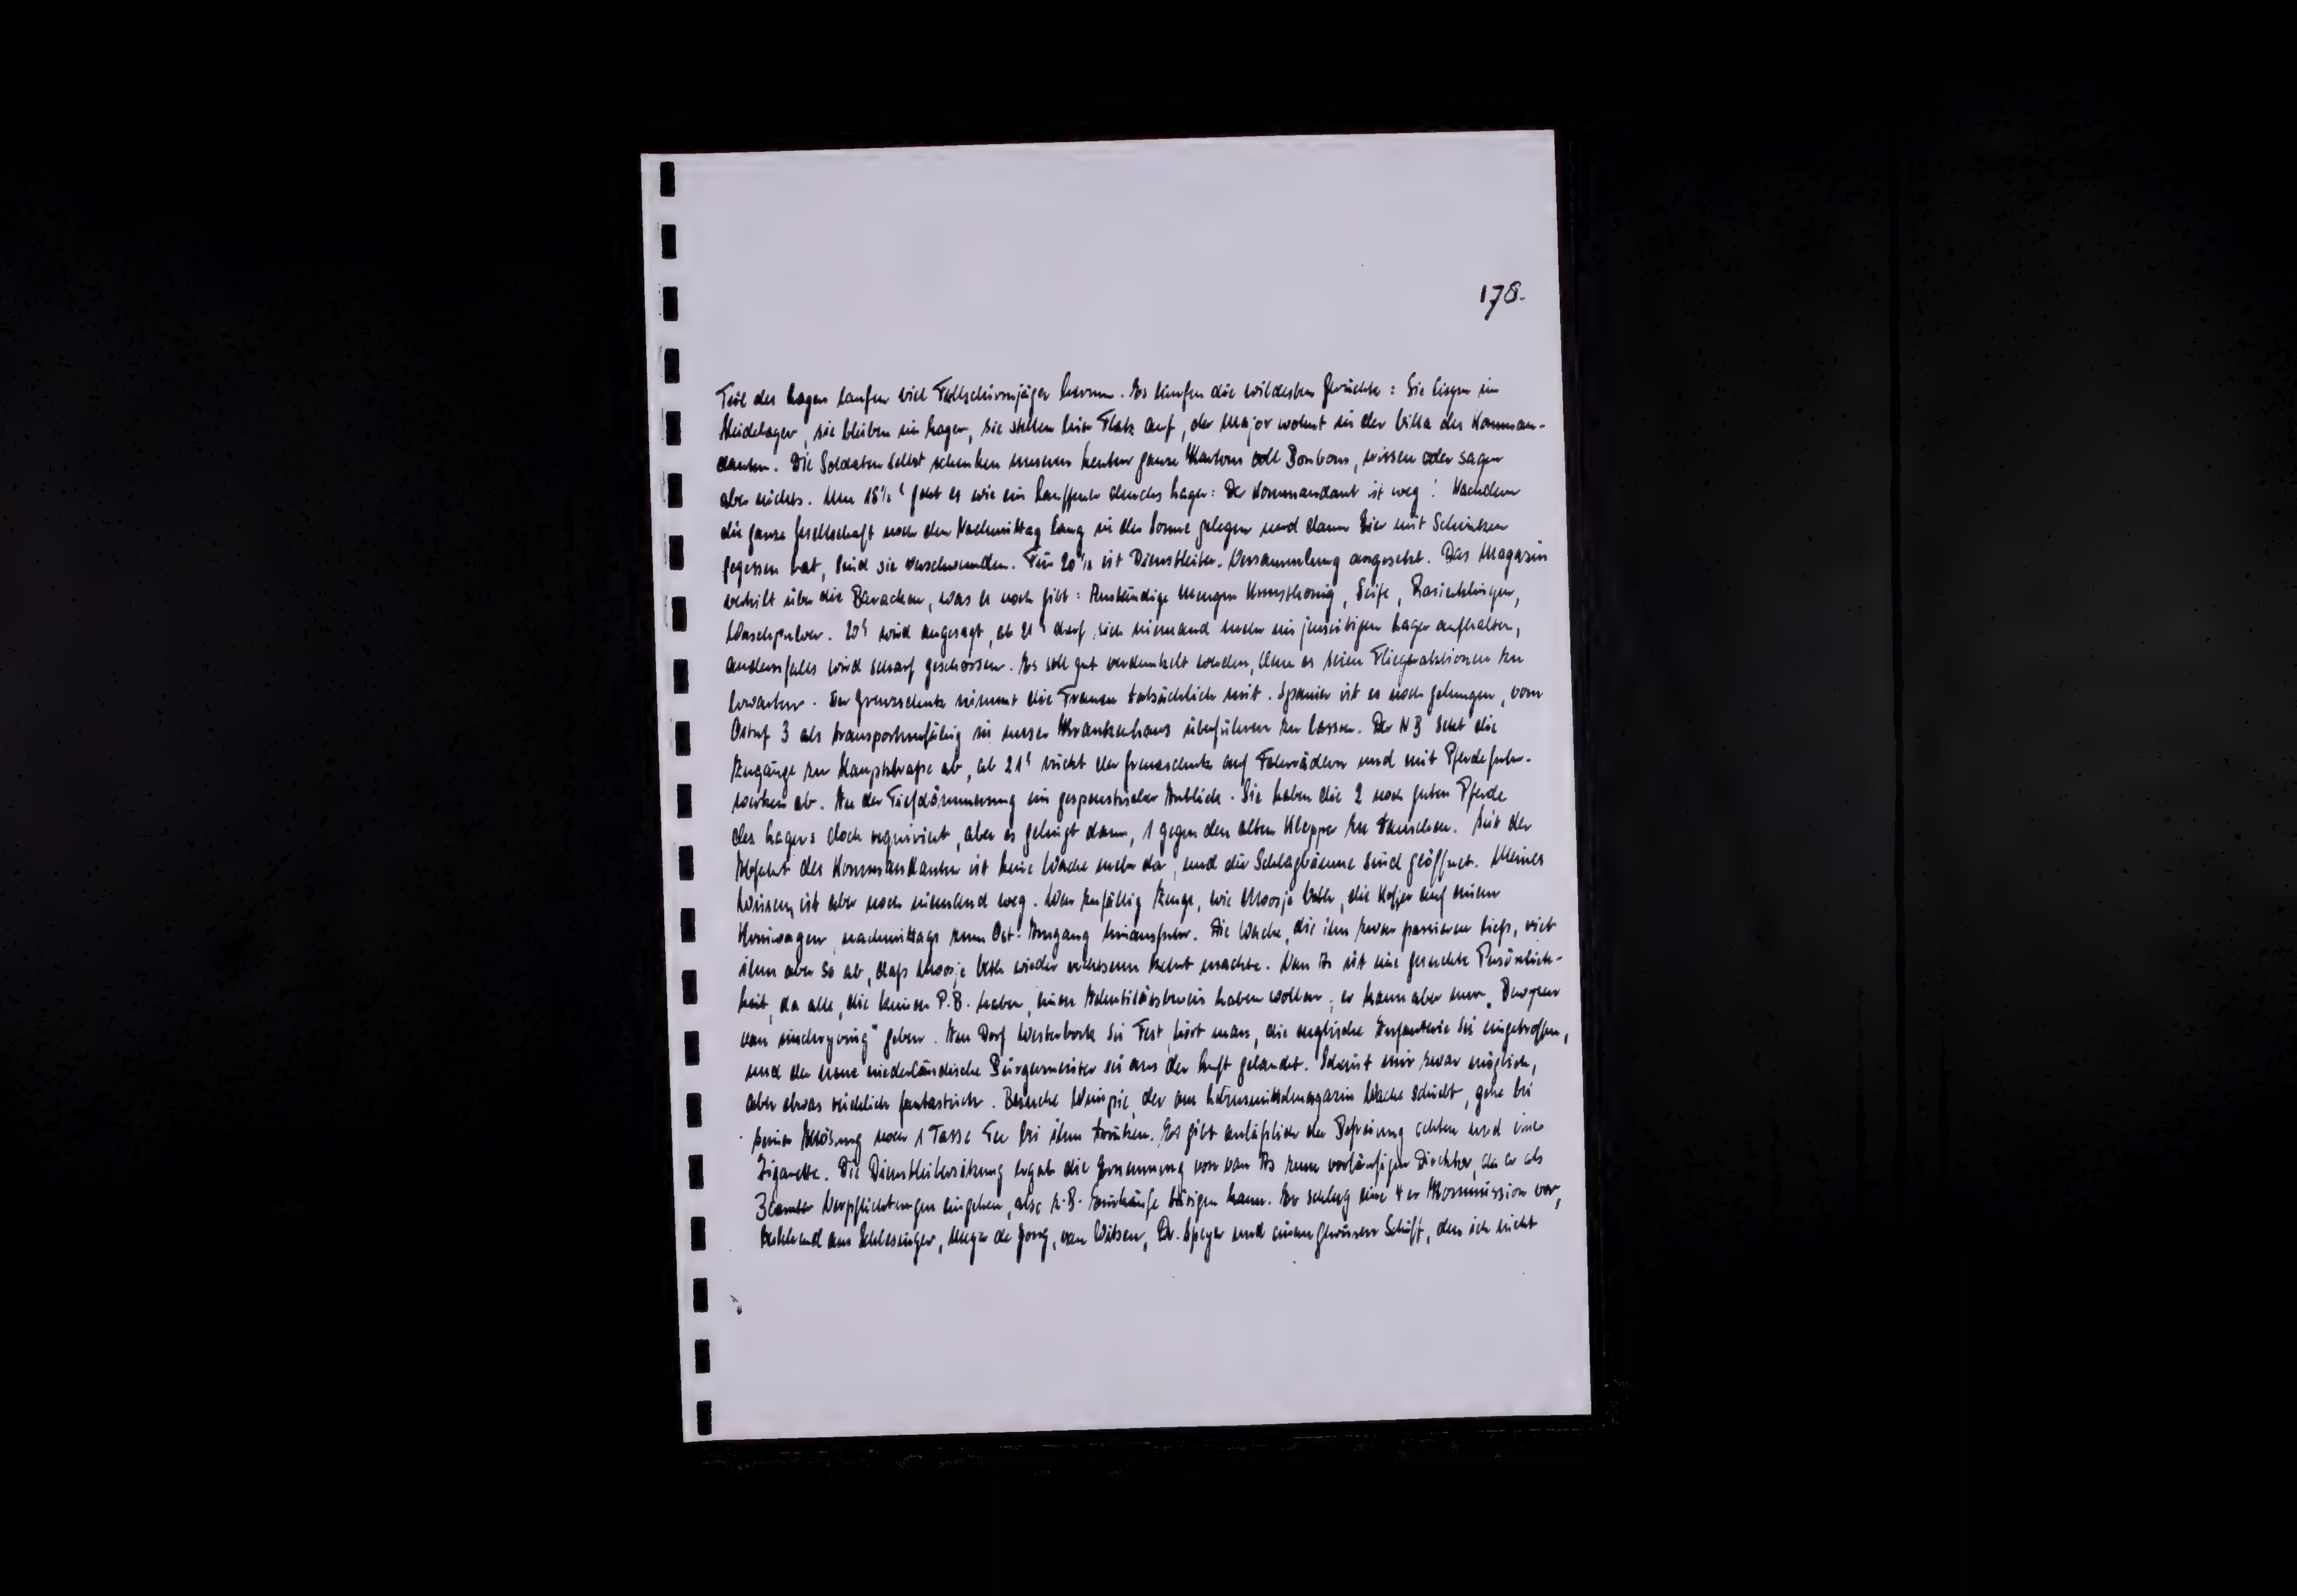 178.
Teil des Lagers laufen viel Fallschirmjäger herum. Es laufen die wildesten Gerüchte: Sie liegen im
Heidelager, sie bleiben im Lager, sie stellen hier Flak auf, der Major wohnt in der Villa des Komman-
danten. Die Soldaten selbst schenken unseren Leuten ganze Kartons voll Bonbons, wissen oder sagen
aber nichts. Um 18½ʰ geht es wie ein Lauffeuer durchs Lager: Der Kommandant ist weg! Nachdem
die ganze Gesellschaft noch den Nachmittag lang in der Sonne gelegen und dann Eier mit Schinken
gegessen hat, sind sie verschwunden. Für 20½ ist Dienstleiter-Versammlung angesetzt. Das Magazin
verteilt über die Baracken, was es noch gibt: Anständige Mengen Kunsthonig, Seife, Rasierklingen,
Waschpulver. 20ʰ wird angesagt, ab 21ʰ darf sich niemand mehr im jenseitigen Lager aufhalten,
andernfalls wird scharf geschossen. Es soll gut verdunkelt werden, denn es seien Fliegeraktionen zu
erwarten. Der Grenzschutz nimmt die Frauen tatsächlich mit. Spanier ist es noch gelungen, vom
3 als transportunfähig in unser Krankenhaus überführen zu lassen. Der NB setzt die
Zugänge zur Hauptstraße ab, ab 21ʰ rückt der Grenzschutz auf Fahrrädern und mit Pferdefuhr-
werken ab. In der Tiefdämmerung ein gespenstischer Anblick. Sie haben die 2 noch guten Pferde
des Lagers doch requiriert, aber es gelingt dann, 1 gegen den alten Klepper zu tauschen. Seit der
Abfahrt des Kommandanten ist keine Wache mehr da, und die Schlagbäume sind geöffnet. Meines
Wissens ist aber noch niemand weg. War zufällig Zeuge, wie Moosje, die Koffer auf einem
nachmittags zum Ost-Ausgang hinausfuhr. Die Wache, die ihn zuvor passieren ließ, riet
ihm aber so ab, daß Moosje wieder kehrt machte. Van As ist eine gesuchte Persönlich-
keit, da alle, die keinen P.B. haben, einen Identitätsbeweis haben wollen; er kann aber nur „Bewijzen
van inschrijving“ geben. In Dorf Westerbork sei Fest, hört man, die englische Infanterie sei eingetroffen,
und der neue niederländische Bürgermeister sei aus der Luft gelandet. Scheint mir zwar möglich,
aber etwas reichlich fantastisch. Besuche, der am Lebensmittelmagazin Wache schiebt, gehe bei
seiner Ablösung noch 1 Tasse Tee bei ihm trinken. Es gibt anläßlich der Befreiung echten und eine
Zigarette. Die Dienstleitersitzung ergab die Ernennung von van As zum vorläufigen Direktor, da er als
Beamter Verpflichtungen eingehen, also z.B. Einkäufe tätigen kann. Er schlug eine 4er Kommission vor,
bestehend aus Schlesinger, de Jong, van Witsen, Dr. Speyer und einem gewissen Schüft, den ich nicht